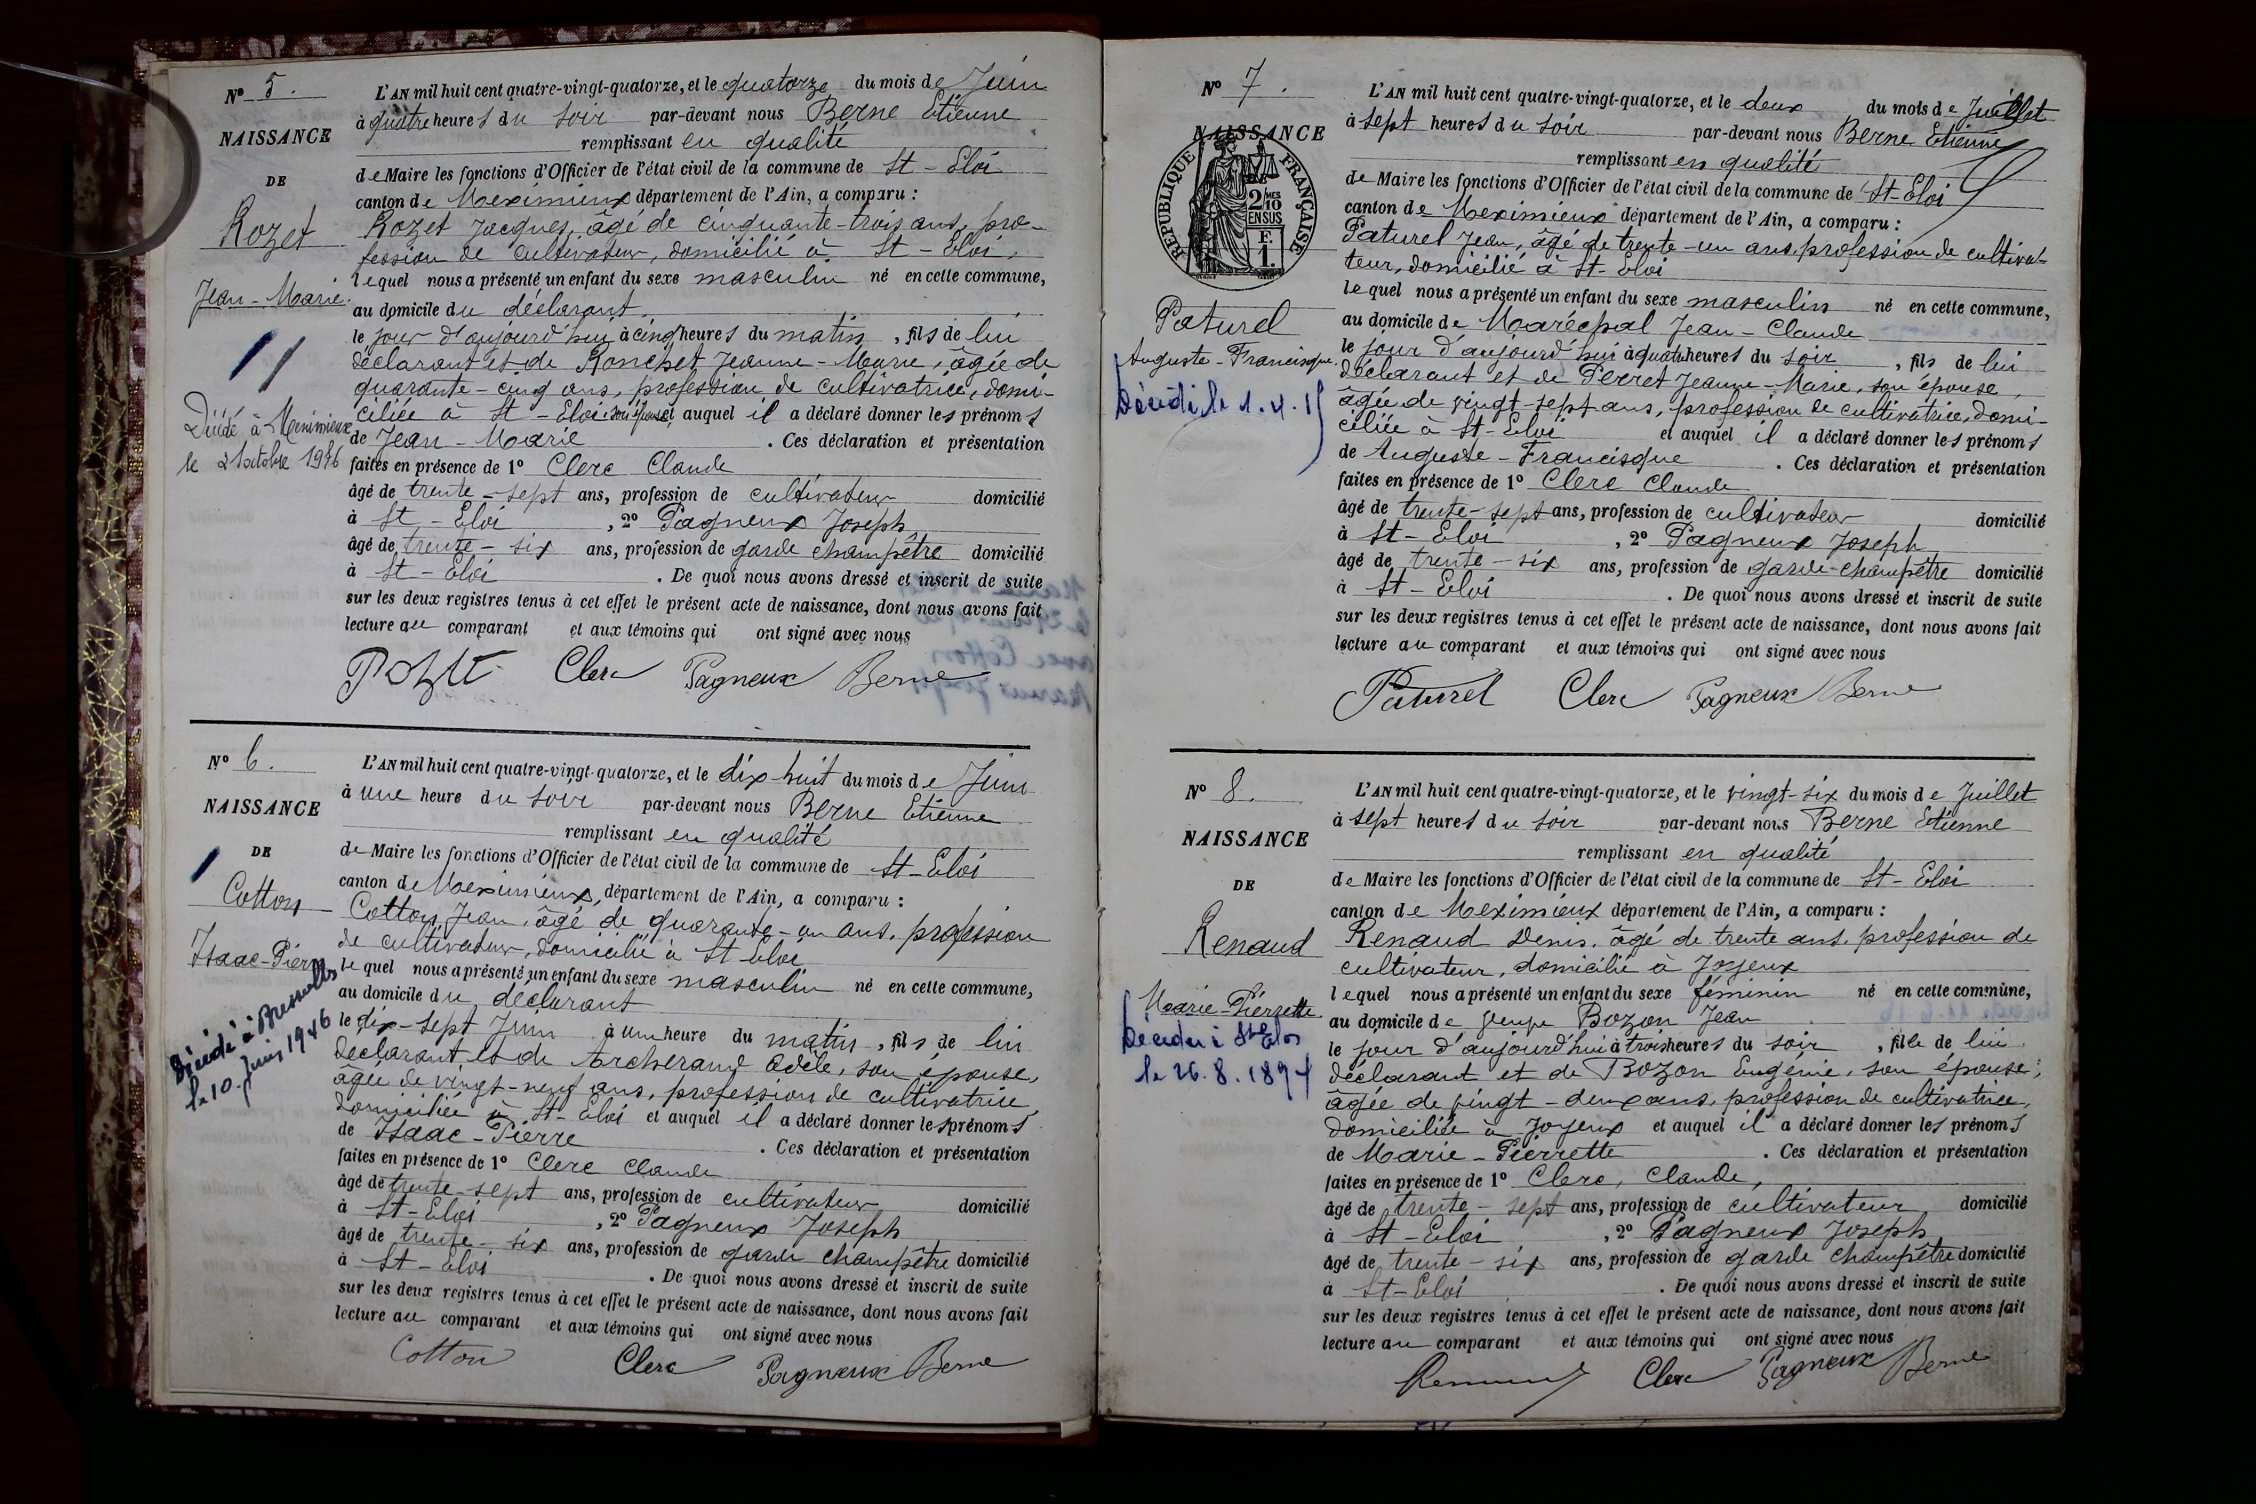 N° 5.
NAISSANCE
DE
Rozet
Jean-Marie.
Décédé à Meximieux
le 2 octobre 1946
L'AN mil huit cent quatre-vingt-quatorze, et le quatorze du mois de Juin
à quatre heures du soir par-devant nous Berne Etienne
remplissant en qualité
de Maire les fonctions d'Officier de l'état civil de la commune de St-Eloi
canton de Meximieux département de l'Ain, a comparu :
Rozet Jacques, âgé de cinquante-trois ans, pro-
fession de cultivateur, domicilié à St-Eloi,
lequel nous a présenté un enfant du sexe masculin né en cette commune,
au domicile du déclarant.
le jour d'aujourd'hui à cinq heures du matin, fils de lui
déclarant et de Ronchet Jeanne-Marie, âgée de
quarante-cinq ans, profession de cultivatrice, domi-
ciliée à St-Eloi son épouse, et auquel il a déclaré donner les prénoms
de Jean-Marie. Ces déclaration et présentation
faites en présence de 1° Clerc Claude
âgé de trente-sept ans, profession de cultivateur domicilié
à St-Eloi, 2° Pagneux Joseph
âgé de trente-six ans, profession de garde champêtre domicilié
à St-Eloi. De quoi nous avons dressé et inscrit de suite
sur les deux registres tenus à cet effet le présent acte de naissance, dont nous avons fait
lecture au comparant et aux témoins qui ont signé avec nous
Rozet Clerc Pagneux Berne
N° 6.
NAISSANCE
DE
Cotton
Isaac-Pierre
Décédé à Bressolles
le 10 juin 1946
L'AN mil huit cent quatre-vingt-quatorze, et le dix-huit du mois de Juin
à une heure du soir par-devant nous Berne Etienne
remplissant en qualité
de Maire les fonctions d'Officier de l'état civil de la commune de St-Eloi
canton de Meximieux, département de l'Ain, a comparu :
Cotton Jean, âgé de quarante-un ans, profession
de cultivateur, domicilié à St-Eloi
lequel nous a présenté un enfant du sexe masculin né en cette commune,
au domicile du déclarant
le dix-sept Juin à une heure du matin, fils de lui
déclarant et de Archerand Adèle, son épouse,
âgée de vingt-neuf ans, profession de cultivatrice,
domiciliée à St-Eloi et auquel il a déclaré donner les prénoms
de Isaac-Pierre. Ces déclaration et présentation
faites en présence de 1° Clerc Claude
âgé de trente-sept ans, profession de cultivateur domicilié
à St-Eloi, 2° Pagneux Joseph
âgé de trente-six ans, profession de garde champêtre domicilié
à St-Eloi. De quoi nous avons dressé et inscrit de suite
sur les deux registres tenus à cet effet le présent acte de naissance, dont nous avons fait
lecture au comparant et aux témoins qui ont signé avec nous
Cotton Clerc Pagneux Berne
N° 7.
NAISSANCE
RÉPUBLIQUE FRANÇAISE
2/10 MES
EN SUS
F.
1.
Paturel
Auguste-Francisque.
Décédé le 1.4.15
L'AN mil huit cent quatre-vingt-quatorze, et le deux du mois de Juillet
à sept heures du soir par-devant nous Berne Etienne
remplissant en qualité
de Maire les fonctions d'Officier de l'état civil de la commune de St-Eloi
canton de Meximieux département de l'Ain, a comparu :
Paturel Jean, âgé de trente-un ans, profession de cultiva-
teur, domicilié à St-Eloi
lequel nous a présenté un enfant du sexe masculin né en cette commune,
au domicile de Maréchal Jean-Claude
le jour d'aujourd'hui à quatre heures du soir, fils de lui
déclarant et de Perret Jeanne-Marie, son épouse,
âgée de vingt-sept ans, profession de cultivatrice, domi-
ciliée à St-Eloi et auquel il a déclaré donner les prénoms
de Auguste-Francisque. Ces déclaration et présentation
faites en présence de 1° Clerc Claude
âgé de trente-sept ans, profession de cultivateur domicilié
à St-Eloi, 2° Pagneux Joseph
âgé de trente-six ans, profession de garde-champêtre domicilié
à St-Eloi. De quoi nous avons dressé et inscrit de suite
sur les deux registres tenus à cet effet le présent acte de naissance, dont nous avons fait
lecture au comparant et aux témoins qui ont signé avec nous
Paturel Clerc Pagneux Berne
N° 8.
NAISSANCE
DE
Renaud
Marie-Pierrette
Décédée à St Eloi
le 26.8.1894
L'AN mil huit cent quatre-vingt-quatorze, et le vingt-six du mois de Juillet
à sept heures du soir par-devant nous Berne Etienne
remplissant en qualité
de Maire les fonctions d'Officier de l'état civil de la commune de St-Eloi
canton de Meximieux département de l'Ain, a comparu :
Renaud Denis, âgé de trente ans, profession de
cultivateur, domicilié à Joyeux
lequel nous a présenté un enfant du sexe féminin né en cette commune,
au domicile de Bozon Jean
le jour d'aujourd'hui à trois heures du soir, fille de lui
déclarant et de Bozon Eugénie, son épouse,
âgée de vingt-deux ans, profession de cultivatrice,
domiciliée à Joyeux et auquel il a déclaré donner les prénoms
de Marie-Pierrette. Ces déclaration et présentation
faites en présence de 1° Clerc, Claude,
âgé de trente-sept ans, profession de cultivateur domicilié
à St-Eloi, 2° Pagneux Joseph
âgé de trente-six ans, profession de garde champêtre domicilié
à St-Eloi. De quoi nous avons dressé et inscrit de suite
sur les deux registres tenus à cet effet le présent acte de naissance, dont nous avons fait
lecture au comparant et aux témoins qui ont signé avec nous
Renaud Clerc Pagneux Berne